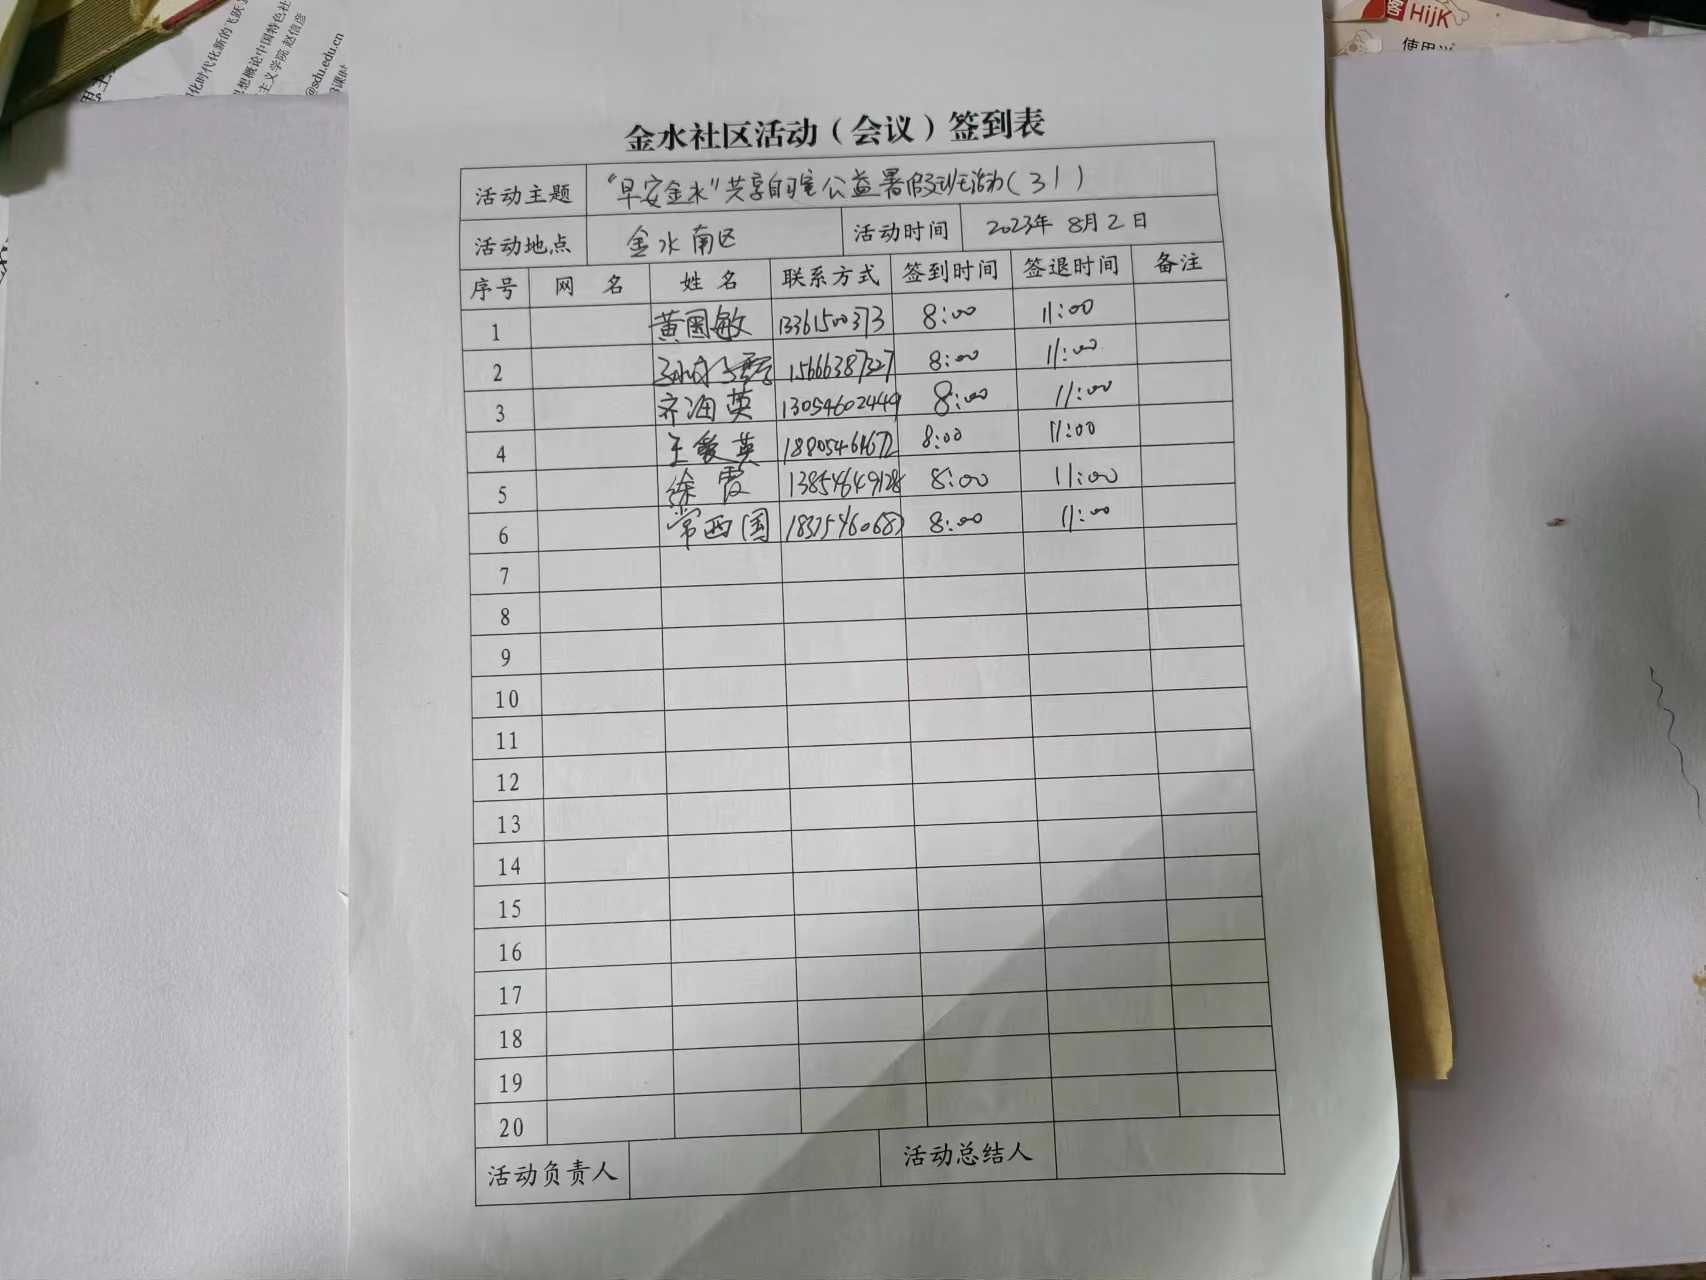 化时代化新的飞跃
思想概论中国特色社
主义学院 赵信彦
@sdu.edu.cn
HijK
使用
金水社区活动（会议）签到表
活动主题 “早安金水”共享自习室公益暑假班活动（31）
活动地点 金水南区 活动时间 2023年 8月2日
序号 网 名 姓 名 联系方式 签到时间 签退时间 备注
1 黄国敏 13361500373 8:00 11:00
2 15666387327 8:00 11:00
3 齐海英 13054602449 8:00 11:00
4 王爱英 18805461672 8:00 11:00
5 徐霞 13854649128 8:00 11:00
6 常西国 8:00 11:00
7
8
9
10
11
12
13
14
15
16
17
18
19
20
活动负责人 活动总结人